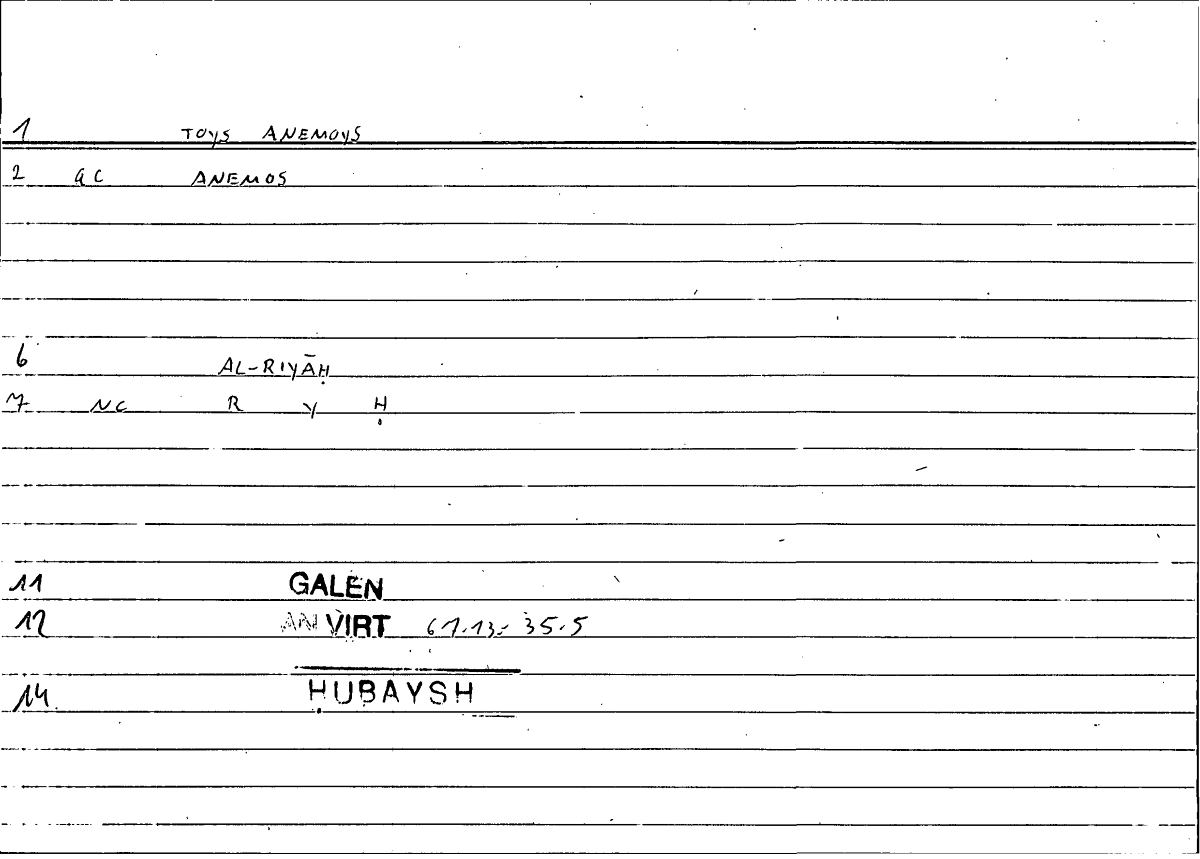 1 TOYS ANEMOYS
2 GC ANEMOS
6 AL-RIYĀḤ
7 NC R Y Ḥ
11 GALEN
12 AN VIRT 67.13-35.5
14 ḤUBAYSH